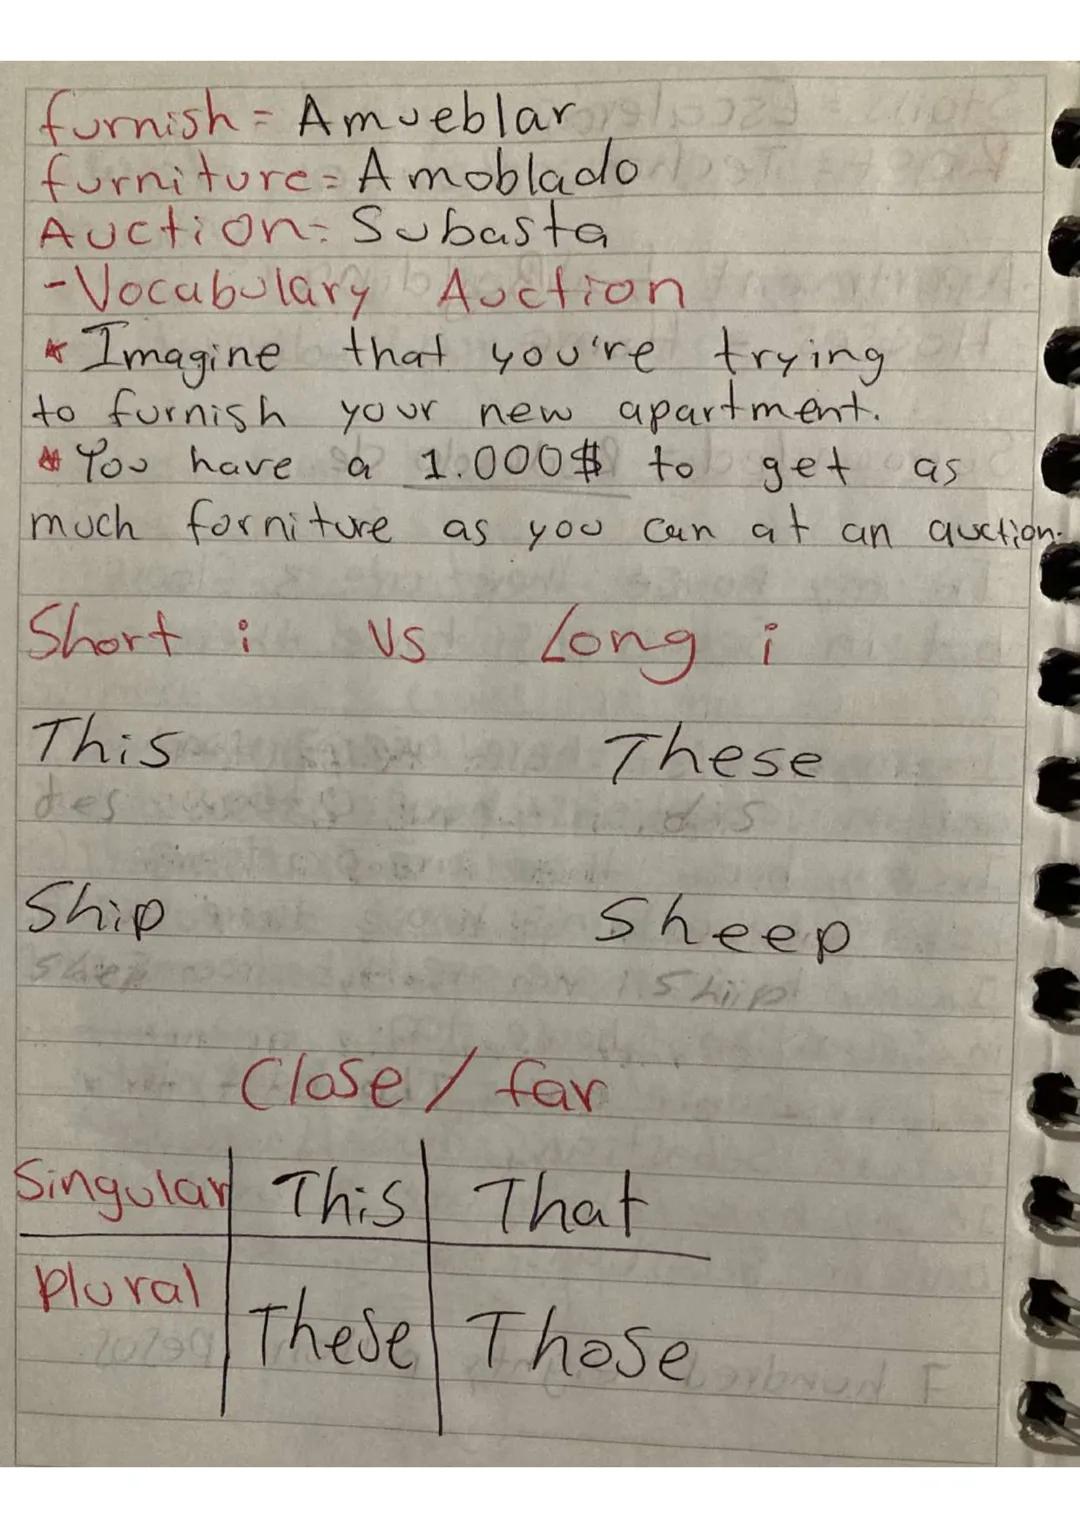 furnish = Amueblar
furniture = Amoblado
Auction = Subasta
- Vocabulary Auction
* Imagine that you're trying
to furnish your new apartment.
* You have a 1.000$ to get as
much forniture as you can at an auction.
Short i vs Long i
This These
des dis
Ship Sheep
Shep Shiip
Close / far
Singular This That
Plural These Those